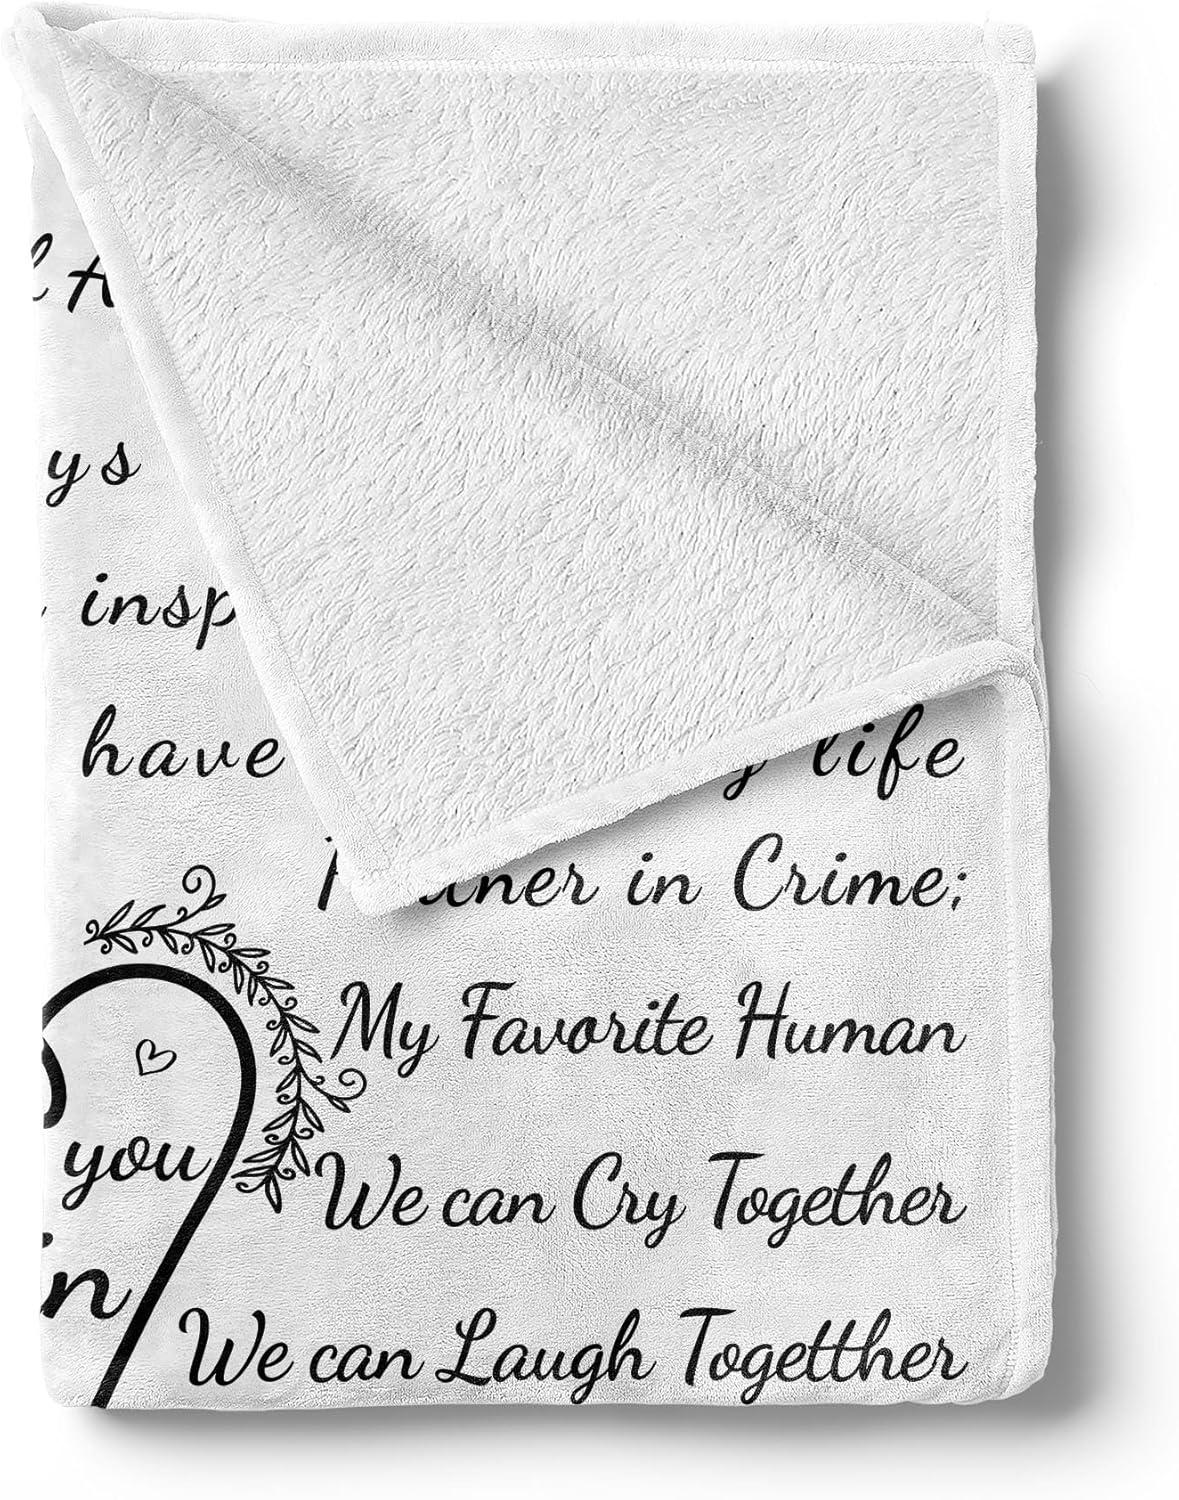 ys
have life
in Crime;
My Favorite Human
you
We can Cry Together
in
We can Laugh Togetther